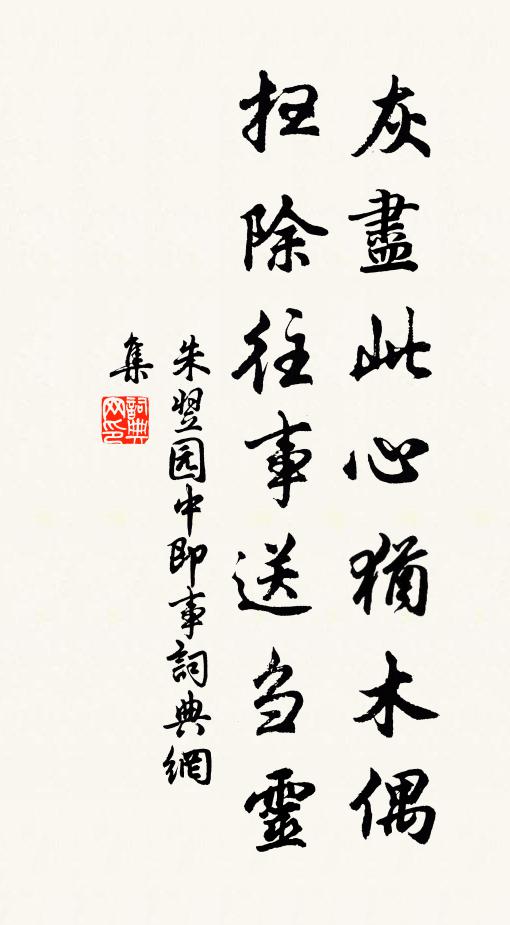 灰盡此心猶木偶
扫除往事送刍靈
朱翌园中即事詞典網
集
詞典网印